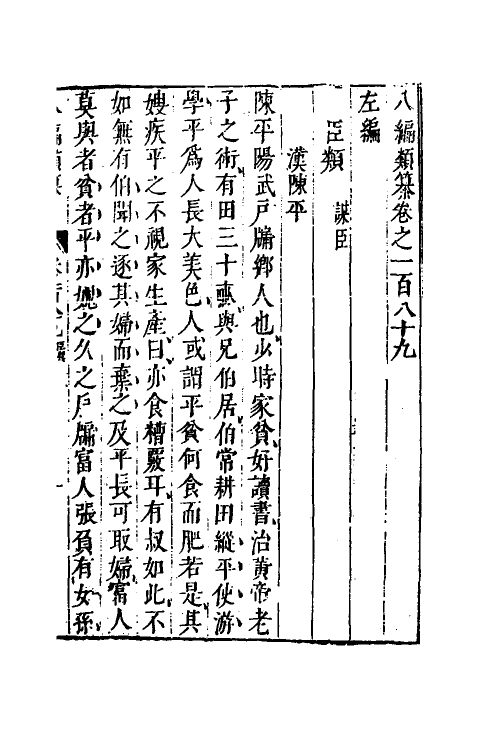 八編類纂卷之一百八十九
左編
臣類　謀臣
漢陳平
陳平陽武戶牖鄉人也少時家貧好讀書治黃帝老
子之術有田三十畝與兄伯居伯常耕田縱平使游
學平爲人長大美色人或謂平貧何食而肥若是其
嫂疾平之不視家生產曰亦食糟覈耳有叔如此不
如無有伯聞之逐其婦而棄之及平長可取婦富人
莫與者貧者平亦媿之久之戶牖富人張負有女孫